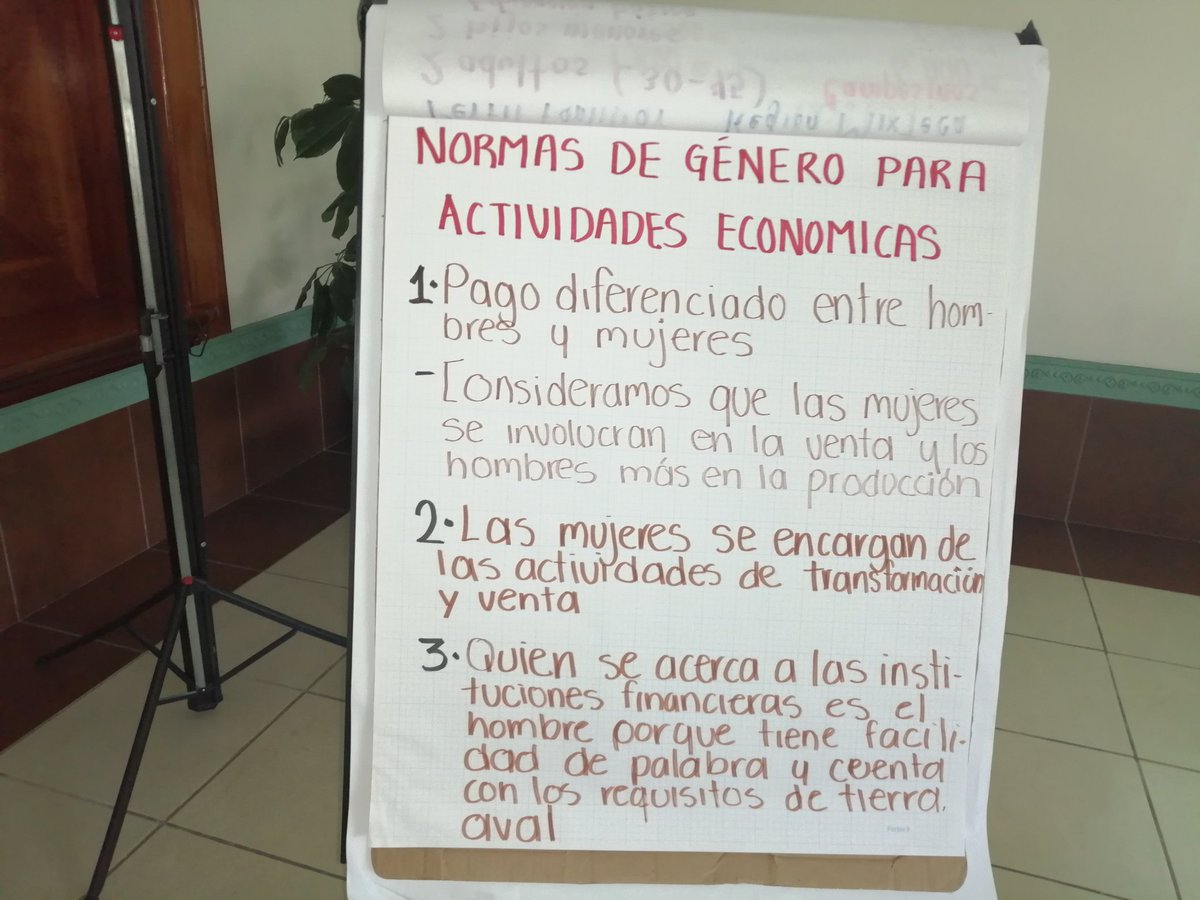 2 hijos menores
2 adultos (30-45) Campesinos
Perfil Familiar Región Mixteca
NORMAS DE GÉNERO PARA
ACTIVIDADES ECONOMICAS
1. Pago diferenciado entre hom-
bres y mujeres
- Consideramos que las mujeres
se involucran en la venta y los
hombres más en la producción
2. Las mujeres se encargan de
las actividades de transformación
y venta
3. Quien se acerca a las insti-
tuciones financieras es el
hombre porque tiene facili-
dad de palabra y cuenta
con los requisitos de tierra,
aval